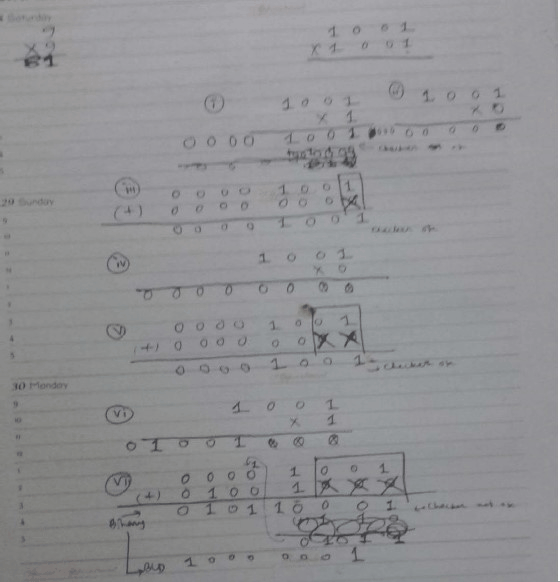 Saturday
9
x 9
81
1 0 0 1
x 1 0 0 1
i 1 0 0 1
x 1
0 0 0 0 1 0 0 1
ii 1 0 0 1
x 0
0 0 0 0 0
29 Sunday
iii 0 0 0 0 1 0 0 1
(+) 0 0 0 0 0 0 0 x
0 0 0 0 1 0 0 1
checker ok
iv 1 0 0 1
x 0
0 0 0 0 0 0 0 0
v 0 0 0 0 1 0 0 1
(+) 0 0 0 0 0 0 x x
0 0 0 0 1 0 0 1 → checker ok
30 Monday
vi 1 0 0 1
x 1
0 1 0 0 1 0 0 0
1
vii 0 0 0 0 1 0 0 1
(+) 0 1 0 0 1 x x x
0 1 0 1 1 0 0 0 1 checker not ok
Binary
0 1 0 1 1
BCD 1 0 0 0 0 0 0 1